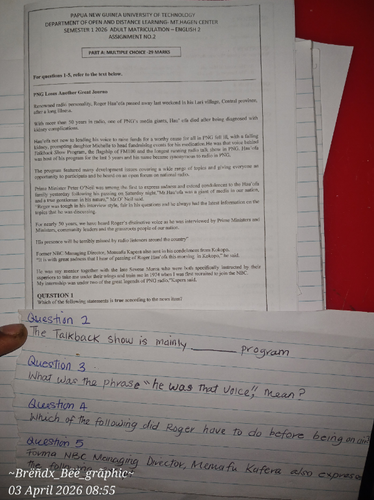 PAPUA NEW GUINEA UNIVERSITY OF TECHNOLOGY
DEPARTMENT OF OPEN AND DISTANCE LEARNING- MT.HAGEN CENTER
SEMESTER 1 2026 ADULT MATRICULATION – ENGLISH 2
ASSIGNMENT NO.2
PART A: MULTIPLE CHOICE- 25 MARKS
For questions 1-5, refer to the text below.
PNG Loses Another Great Journo
Renowned radio personality, Roger Hau'ofa passed away last weekend in his village, Central province,
after a long illness.
With more than 50 years in radio, one of PNG's media giants, Hau' ofa died after being diagnosed with
kidney complications.
Hau'ofa not new to lending his voice to raise funds for a worthy cause for all in PNG fell ill, with a failing
kidney, prompting daughter Michelle to head fundraising events for his medication. He was that voice behind
talkback Show Program, the flagship of FM100 and the longest running radio talk show in PNG. Hau'ofa
was host of his program for the last years and his name became synonymous to radio in PNG.
The program featured many development issues covering a wide range of topics and giving everyone an
opportunity to participate and be heard on an open forum on national radio.
Prime Minister Peter O'Neil was among the first to express sorrow and extend condolences to the Hau'ofa
family yesterday following his passing on Saturday night."Mr Hau'ofa was a giant of media in our nation,
and a true gentleman in his nature," Mr O' Neil said.
"Roger was tough in his interview style, fair in his questions and he always had the latest information on the
topics that he was discussing.
For nearly 50 years, we have heard Roger's distinctive voice as he was interviewed by Prime Ministers and
Ministers, community leaders and the grassroots people of our nation.
His presence will be terribly missed by radio listeners around the country"
Former NBC Managing Director, Memafu Kapera also sent in his condolences from Kokopo.
"It is with great sadness that I hear of passing of Roger Hau'ofa this morning in Kokopo," he said.
He was my mentor together with the late who were both specifically instructed by their
superiors to take me under their wings and train me in 1974 when I was first recruited to join the NBC.
My internship was under two of the great legends of PNG radio,"Kapera said.
QUESTION 1
Which of the following statements is true according to the news item?
Question 2
The Talkback show is mainly ______ program
Question 3
What was the phrase "he was that voice", mean?
Question 4
Which of the following did Roger have to do before being on air
Question 5
Forma NBC Managing Director, Memafu Kafera also express
the following
~Brendx_Bee_graphic~
03 April 2026 08:55